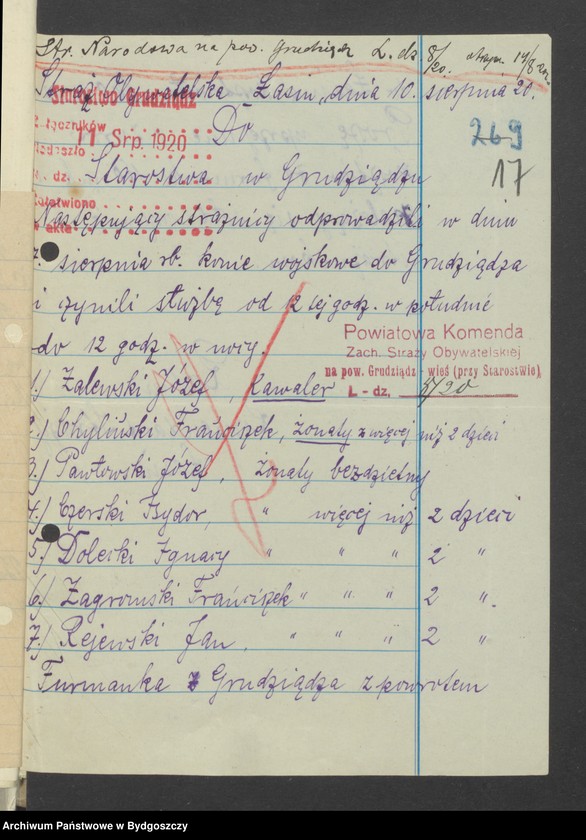 Str. Narodowa na pow. Grudziądz L. dz. 8/20. otrzym. 14/8 20.
Straż Obywatelska Łasin, dnia 10. sierpnia 20.
Starostwo Grudziądz
Załączników
Nadeszło 11 Srp. 1920
L. dz.
Załatwiono
w akta
Do
269
Starostwa w Grudziądzu
17
Następujący strażnicy odprowadzili w dniu
7. sierpnia rb. konie wojskowe do Grudziądza
i czynili służbę od 12 iej godz. w południe
do 12 godz. w nocy.
Powiatowa Komenda
Zach. Straży Obywatelskiej
na pow. Grudziądz - wieś (przy Starostwie).
L - dz.
1.) Zalewski Józef, kawaler
2.) Chyliński Franciszek, żonaty z więcej niż 2 dzieci
3.) Pawłowski Józef, żonaty bezdzietny
4.) Czerski Izydor, " więcej niż 2 dzieci
5.) Dolecki Ignacy " " " 2 "
6.) Zagromski Franciszek " " " 2 ".
7.) Rejewski Jan, " " " 2 "
Furmanka z Grudziądza z powrotem
Archiwum Państwowe w Bydgoszczy